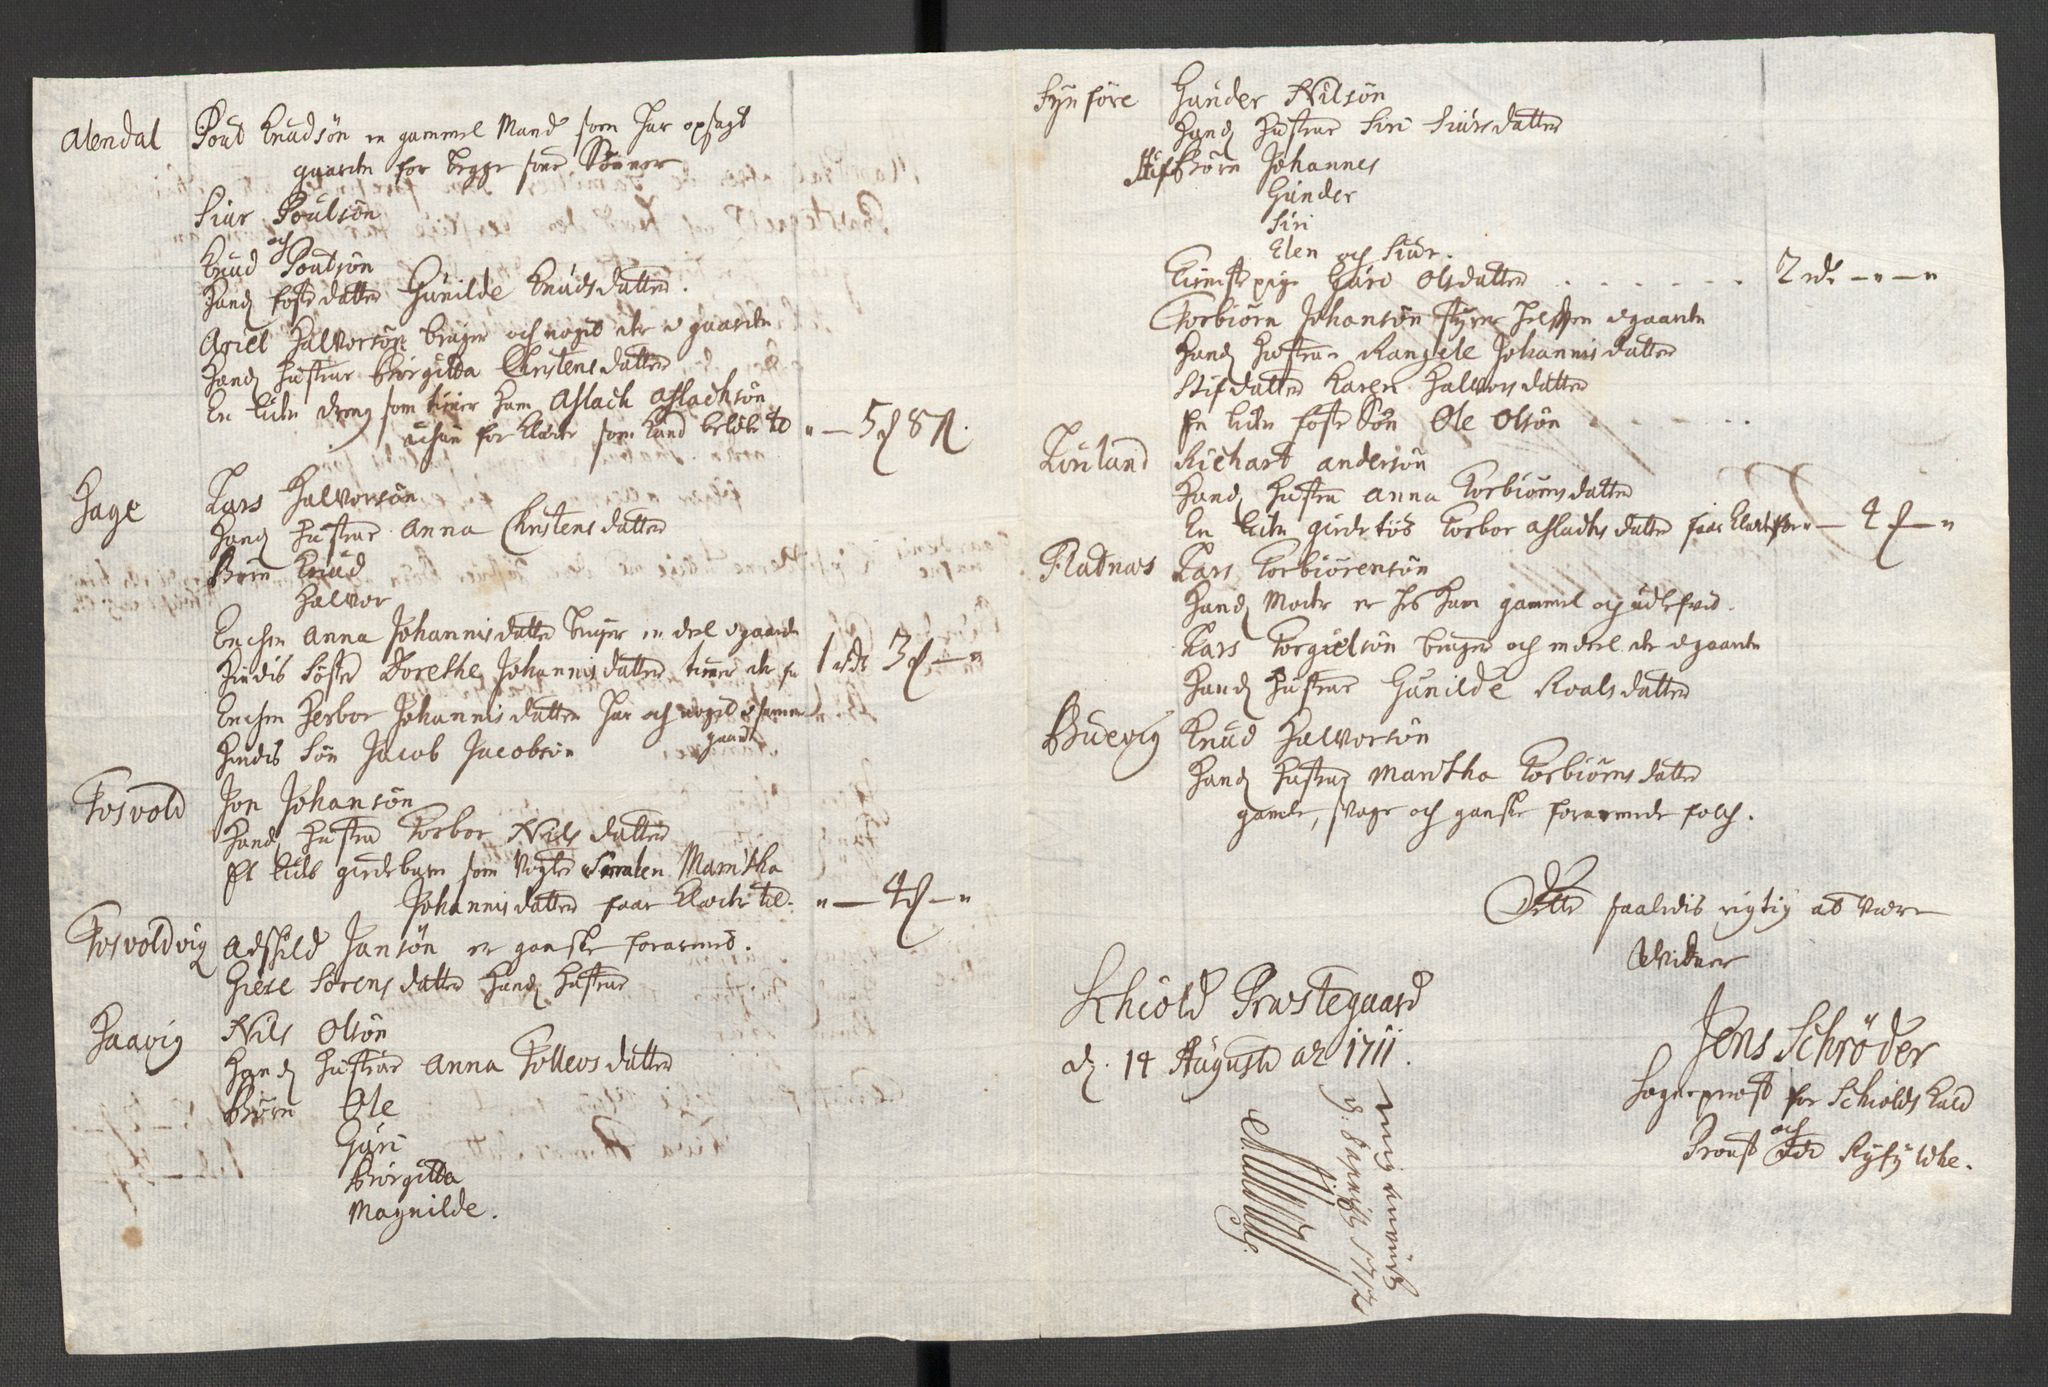 Alendal Poul Knudsön en gammel Mand som har opsagt
gaarden for begge sine Sönner
Siur Poulsön
och
Knud Poulsön
Hands foster datter Gunilde Knudsdatter.
Ariel Halvorsön bruger och noget der i gaarden
Hands hustrue Birgitta Christensdatter
En liden dreng som tiener ham Aslach Aslachsön
for Klæder som kand beløbe til " — 5 ß 8 
Hage Lars Halvorsön
Hands hustrue Anna Christensdatter
Börn Knud
Halvor
Enchen Anna Johannisdatter bruger en deel i gaarden
Hindis Söster Dorethe Johannisdatter tiener der for 1 rd 3 — "
Enchen Herbor Johannisdatter har och noget i samme
gaard
Hindis Sön Jacob Jacobsön
Fosvold Jon Johansön
Hands hustru Torbor Nilsdatter
Et lidet gierdebarn som vogter Smalen Maritha
Johannisdatter faar Klæder til. " — 4 — "
Fosvoldvig Adskild Jansön er ganske forarmed.
Giese Sörensdatter Hands hustrue
Haavig Nils Olsön
Hands hustrue Anna Tollevsdatter
Börn Ole
Guri
Birgitta
Magnilde.
Synföre Gunder Nilsön
Hands hustrue Siri Siursdatter
Stifbörn Johannes
Gunder
Siri
Elen och Siur.
Tieniste pige Guro Olsdatter . . . . . . 2 rdr — " — "
Torbiörn Johansön halfven i gaarden
Hands hustrue Rangele Johannisdatter
Stifdatter Karen Halvorsdatter
En liden foster Sön Ole Olsön . . . .
Richart Andersön
Hands hustru Anna Torbiörnsdatter
En liden gierde tös Torbor Aslachsdatter faar Klæder for " — 4 — "
Flatnæs Lars Torbiörensön
Hands Moder er hos ham gammel och udlefvid.
Lars Torgielsön bruger och en deel der i gaarden
Hands hustrue Gunilde Roalsdatter
Buevig Knud Halvorsön
Hands hustrue Maritha Torbiörnsdatter
gamle, svage och ganske forarmede folch.
Dette saaledis rigtig at være
Vidner
Schiold Præstegaard
d. 14 Augusti ao 1711.
Jens Schröder
Sogneprest for Schiolds Kald
och
Proust udi Ryfylche.
1712